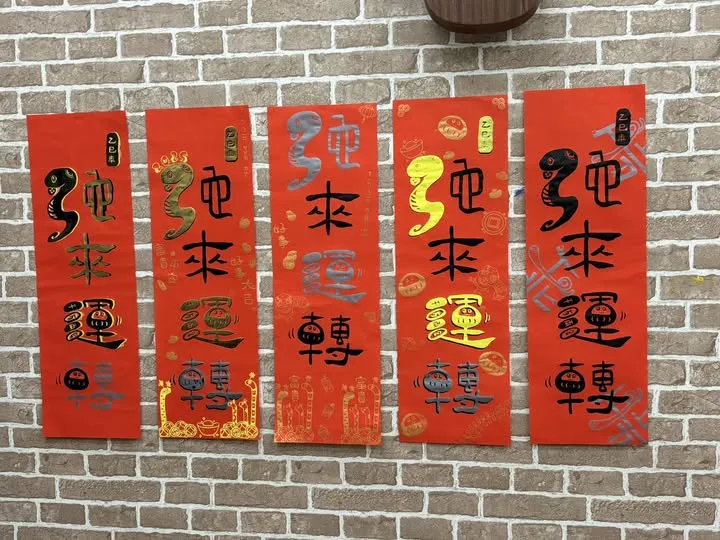 乙巳年
蛇來運轉
乙巳年
蛇來運轉
大吉
蛇來運轉
乙巳年
蛇來運轉
乙巳年
蛇來運轉